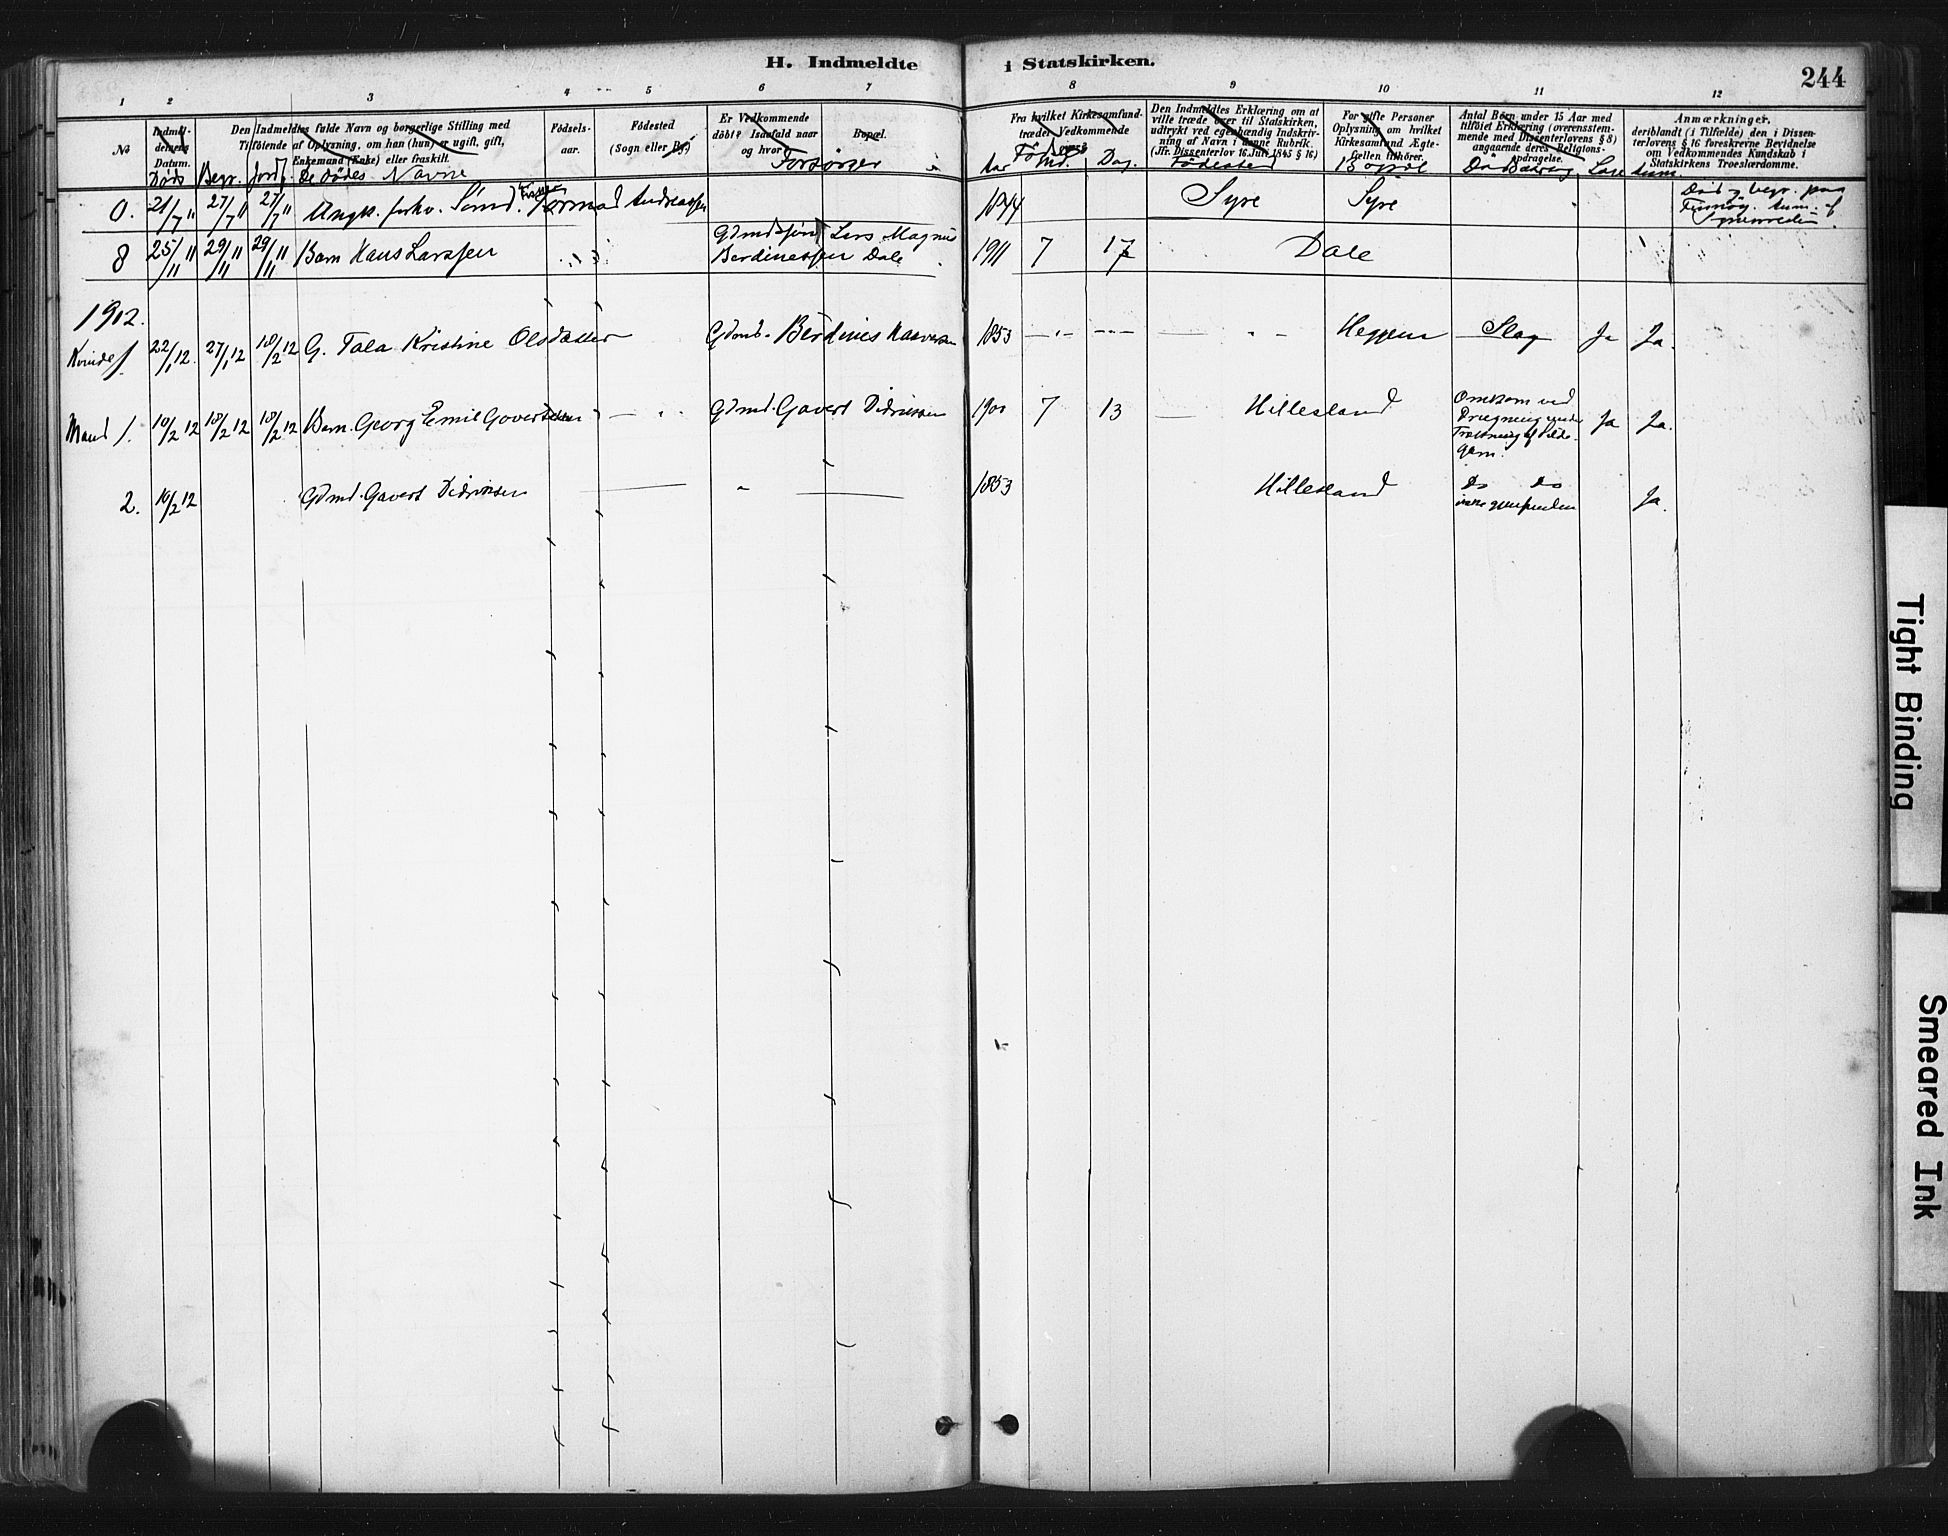 H. Indmeldte i Statskirken.
244
1 2 3 4 5 6 7 8 9 10 11 12
No
Indmeldelsens Datum.
Den Indmeldtes fulde Navn og borgerlige Stilling med
Tilføiende af Oplysning, om han (hun) er ugift, gift,
Enkemand (Enke) eller fraskilt.
Fødsels-
aar.
Fødested
(Sogn eller By)
Er Vedkommende
døbt? Isaafald naar
og hvor?
Bopæl.
Fra hvilket Kirkesamfund-
træder Vedkommende
Den Indmeldtes Erklæring om at
ville træde over til Statskirken,
udtrykt ved egenhændig Indskriv-
ning af Navn i denne Rubrik.
(Jfr. Dissenterlov 16. Juli 1845 § 16)
For gifte Personer
Oplysning om hvilket
Kirkesamfund Ægte-
fællen tilhører.
Antal Børn under 15 Aar med
tilføiet Erklæring (overensstem-
mende med Dissenterlovens § 8)
angaaende deres Religions-
opdragelse.
Anmærkninger,
deriblandt (i Tilfælde) den i Dissen-
terlovens § 16 foreskrevne Bevidnelse
om Vedkommendes Kundskab i
Statskirkens Troeslærdomme.
Døds Begr. Jordf. De dødes Navne
Forsørger
Aar Md. Dag. Fødested Bopæl Dødsaarsag
0. 21/7 11 27/7 11 27/7 11 Tormod Andreassen 1844 Syre Syre
Død og begr. paa
8 25/11 11 29/11 11 29/11 11 Barn Hans Larssen
Lars Magnus
Berdinessen Dale 1911 7 17 Dale
1912.
Kvinde 1. 22/1 12. 27/1 12 18/2 12 G. Tala Kristine Olsdatter Gdmd. Berdines 1853 Heggem Slag Ja Ja.
Mand 1. 10/2 12 18/2 12 18/2 12 Barn. Georg Emil Govertsen Gdmd. Govert Didriksen 1900 7 13 Hillesland
Omkom ved
Ja Ja.
2. 10/2 12 Gdmd. Govert Didriksen 1853 Hillesland Do Do
Ja.
Tight Binding
Smeared Ink